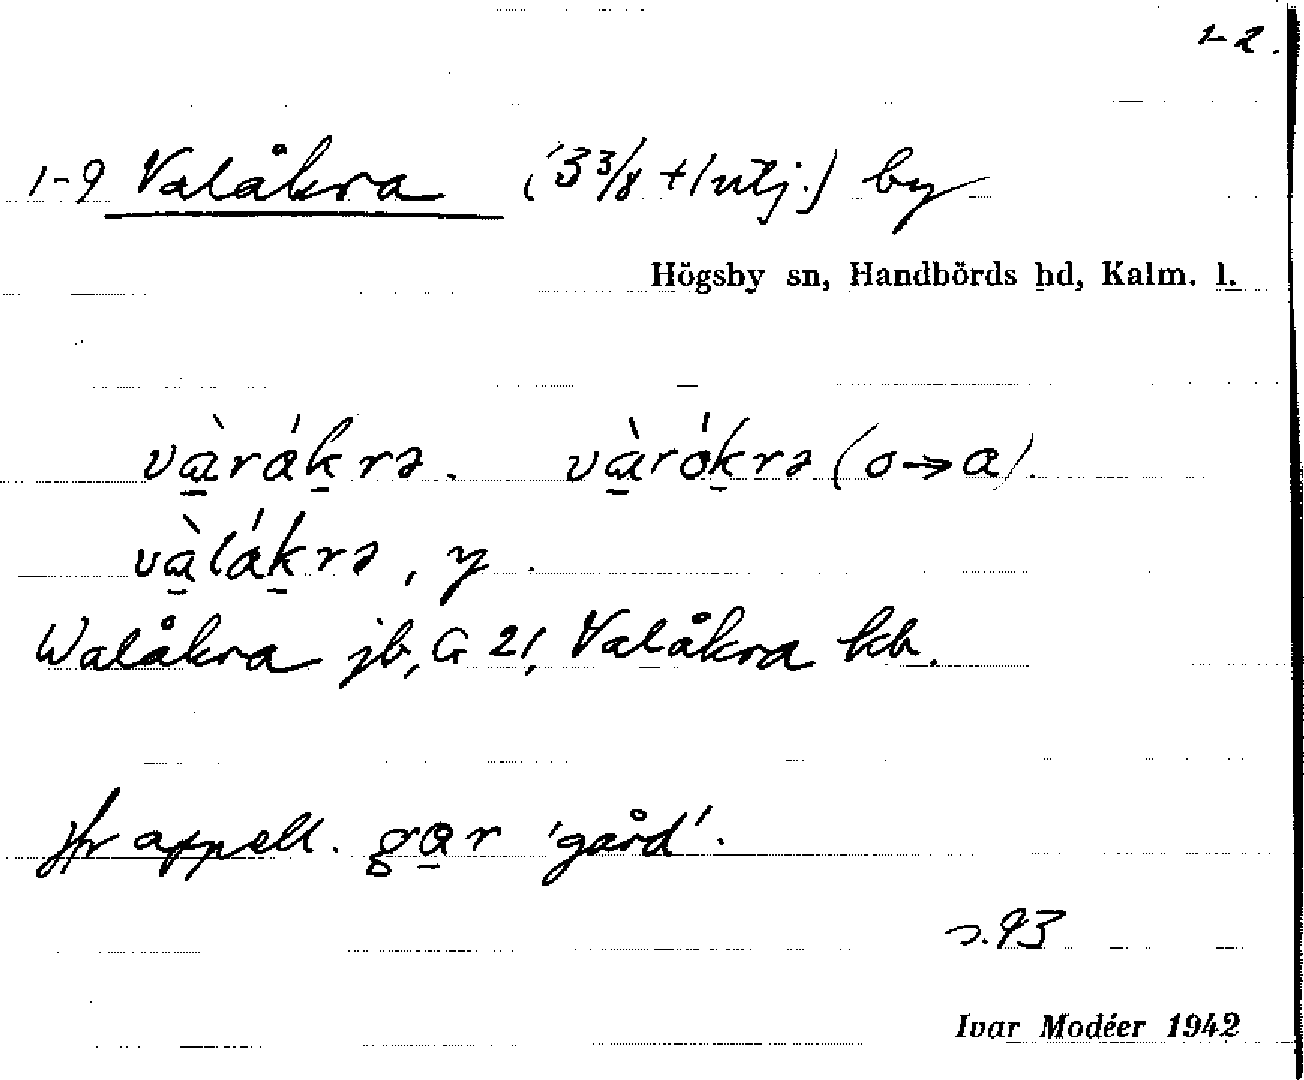 1-2.
1-9 Valåkra (3 3/8 + 1 utj.) by
Högsby sn, Handbörds hd, Kalm. l.
và̱ráḵrə. và̱róḵrə (o→a).
và̱láḵrə, y.
Walåkra jb, G 21, Valåkra kb.
jfr appell. ga̱r 'gård'.
s. 93
Ivar Modéer 1942